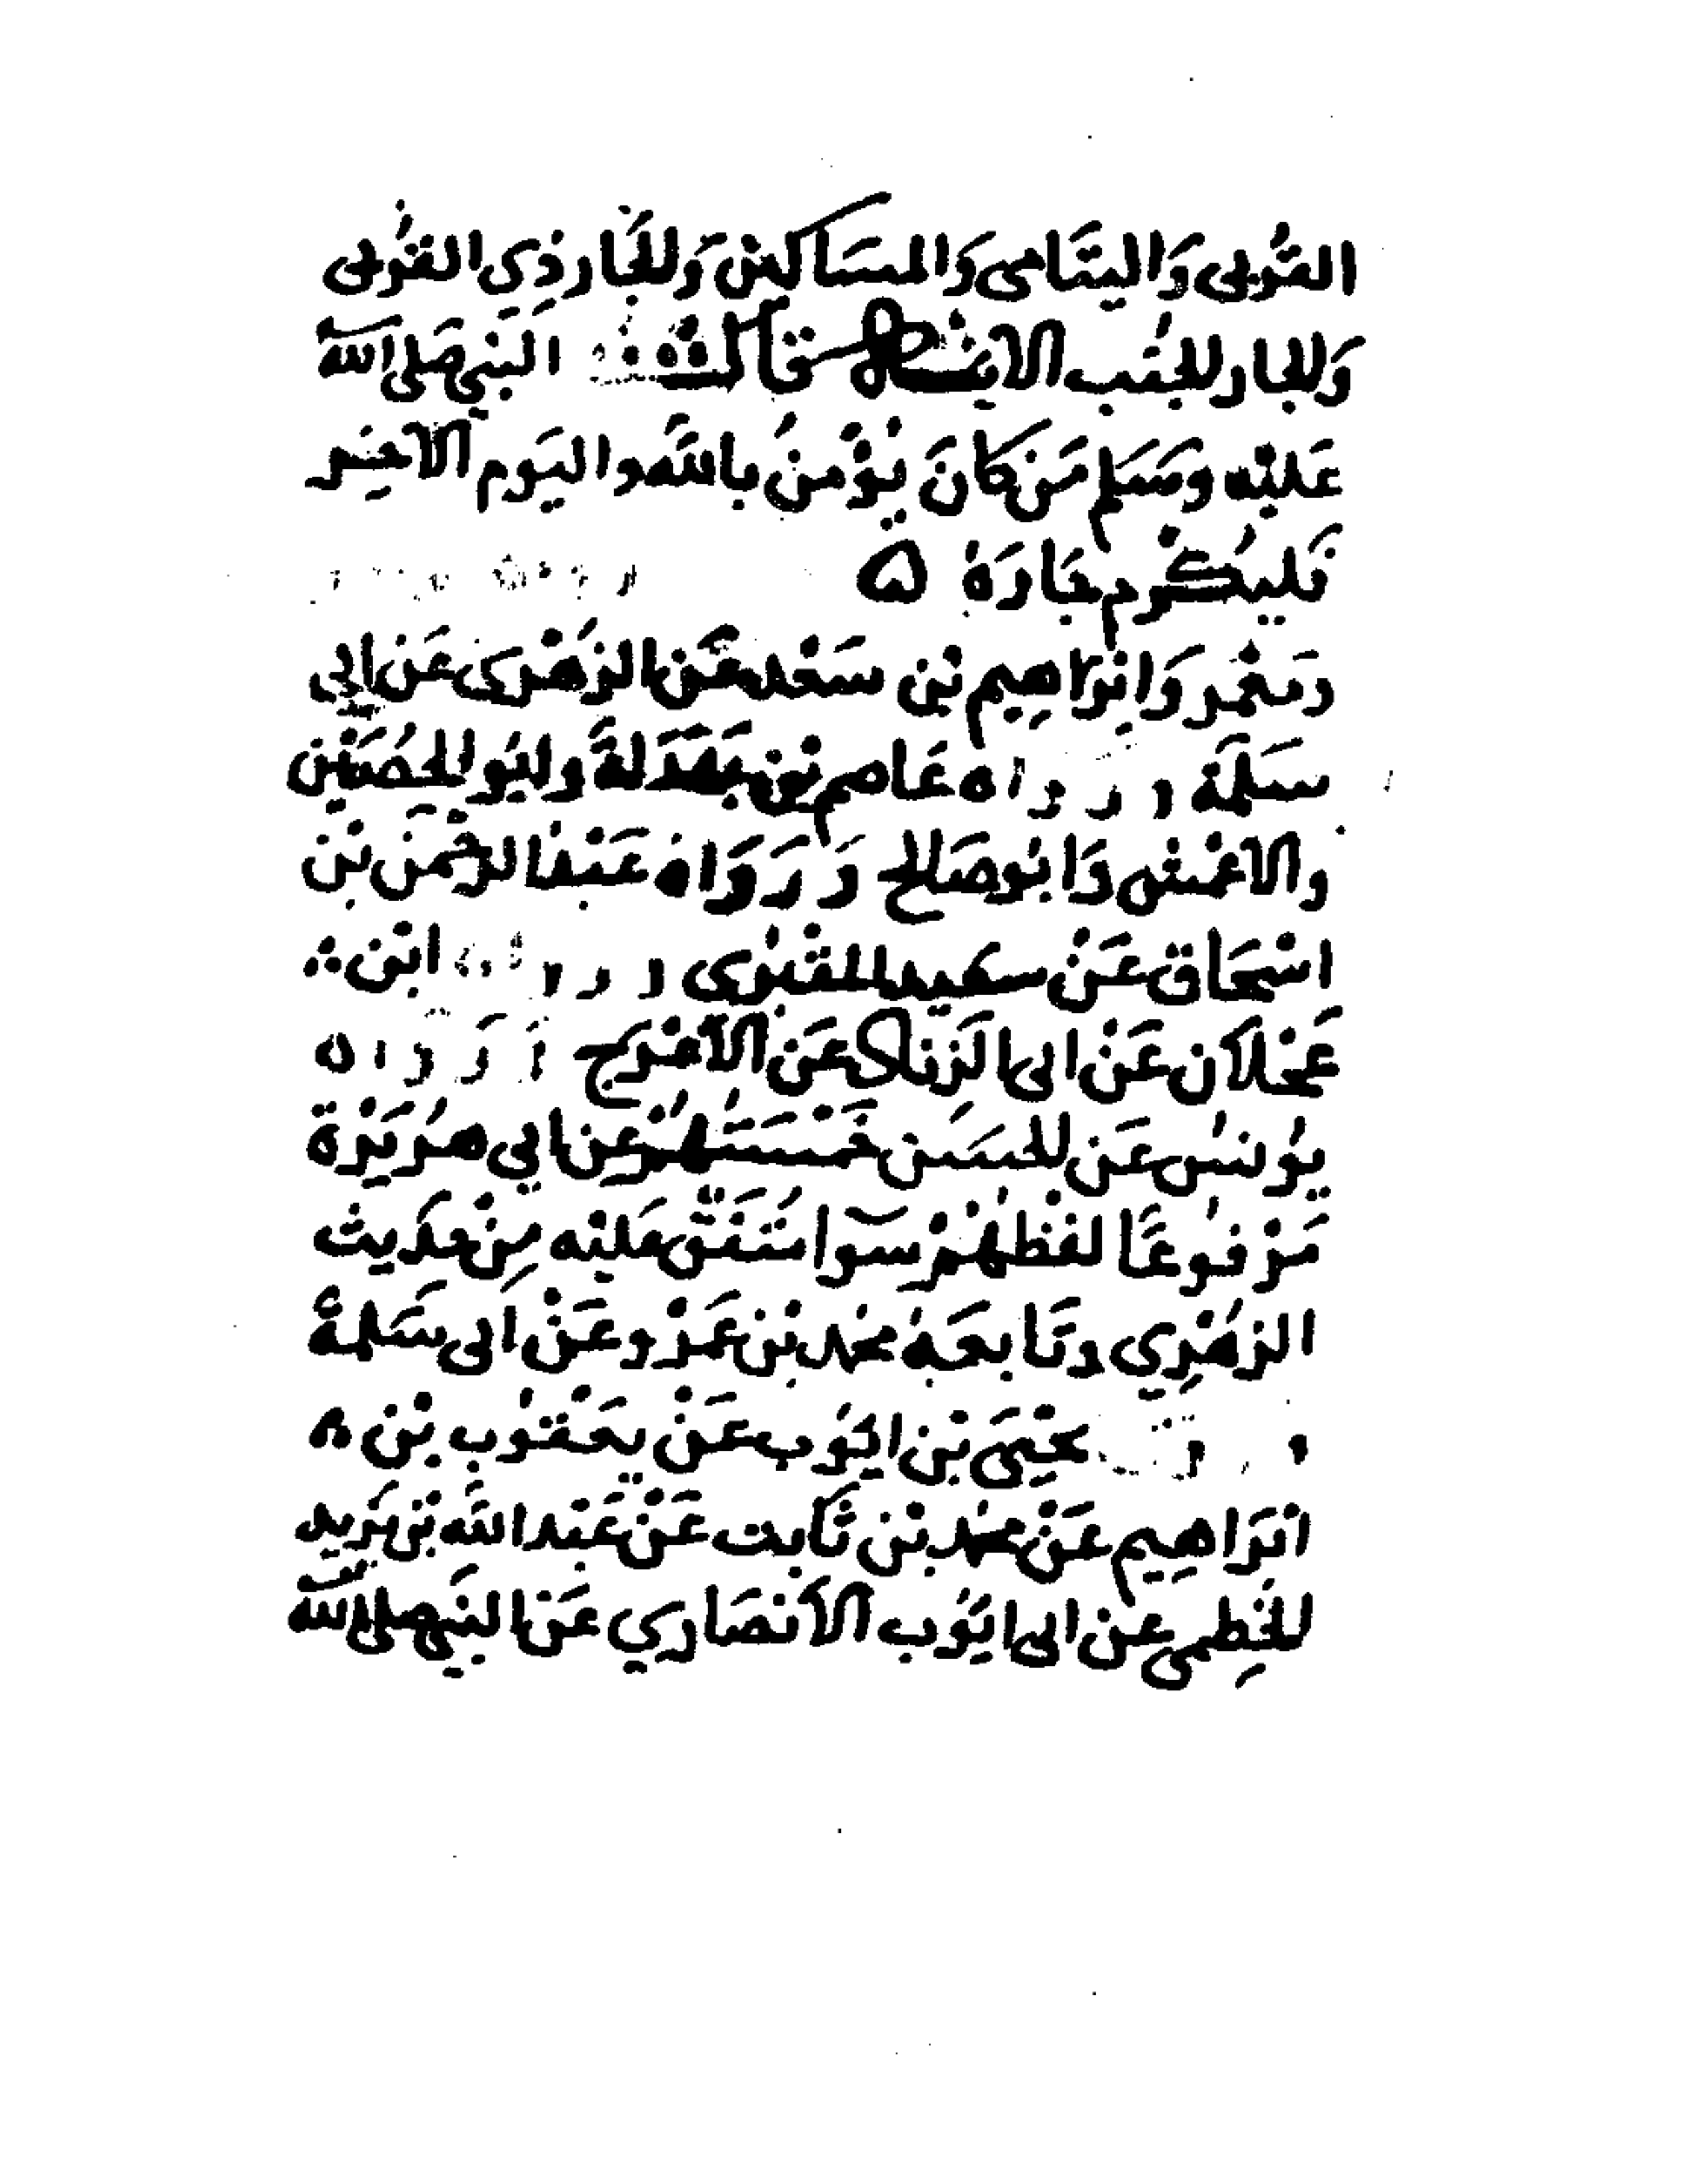 القُربى وَاليتَامى وَالمسَاكين وَالجَار ذِى القُربى
وَالجار الجُنب الاية قال النَّبِي صَلى الله
عَليْه وسَلم مَن كَانَ يُؤْمِنُ بالله واليَوم الآخِر
فَليُكْرم جَارَهُ ه
ومَعْمَر وَابْرَاهيم بْن سَعْد عَن الزُهْرى عَن ابي
سَلَمَة ورواه عَاصم بْن بَهْدَلةَ وابُو الحُصَيْن
والاعْمش وَابُو صَالح وَرَوَاهُ عَبْد الرحْمَن بْن
اسْحَاق عَنْ سَعيد المقبُرى ورواه ابْن
عَجْلَان عَنْ ابى الزنَاد عَن الأعْرج وَرَوَاه
يُونسُ عَن الحسَن خَمْسَتُهُمْ عن ابي هُرَيْرَة
مَرْفُوعًا لفظهُمْ سَوَا مُتفَق عَليْه مِنْ حَدِيث
الزُهْرِي وتَابعَهُ محمد بْن عَمْرو عَنْ ابى سَلمةَ
يحْيَى بْن ايُوب عَنْ يعْقُوب بْن
ابْرَاهِيم عَنْ محمد بْن ثَابت عَنْ عَبْد الله بْن يَزيد
الخَطمِى عَن ابى ايُوب الأنْصَارِي عَن النَّبِي صَلى الله